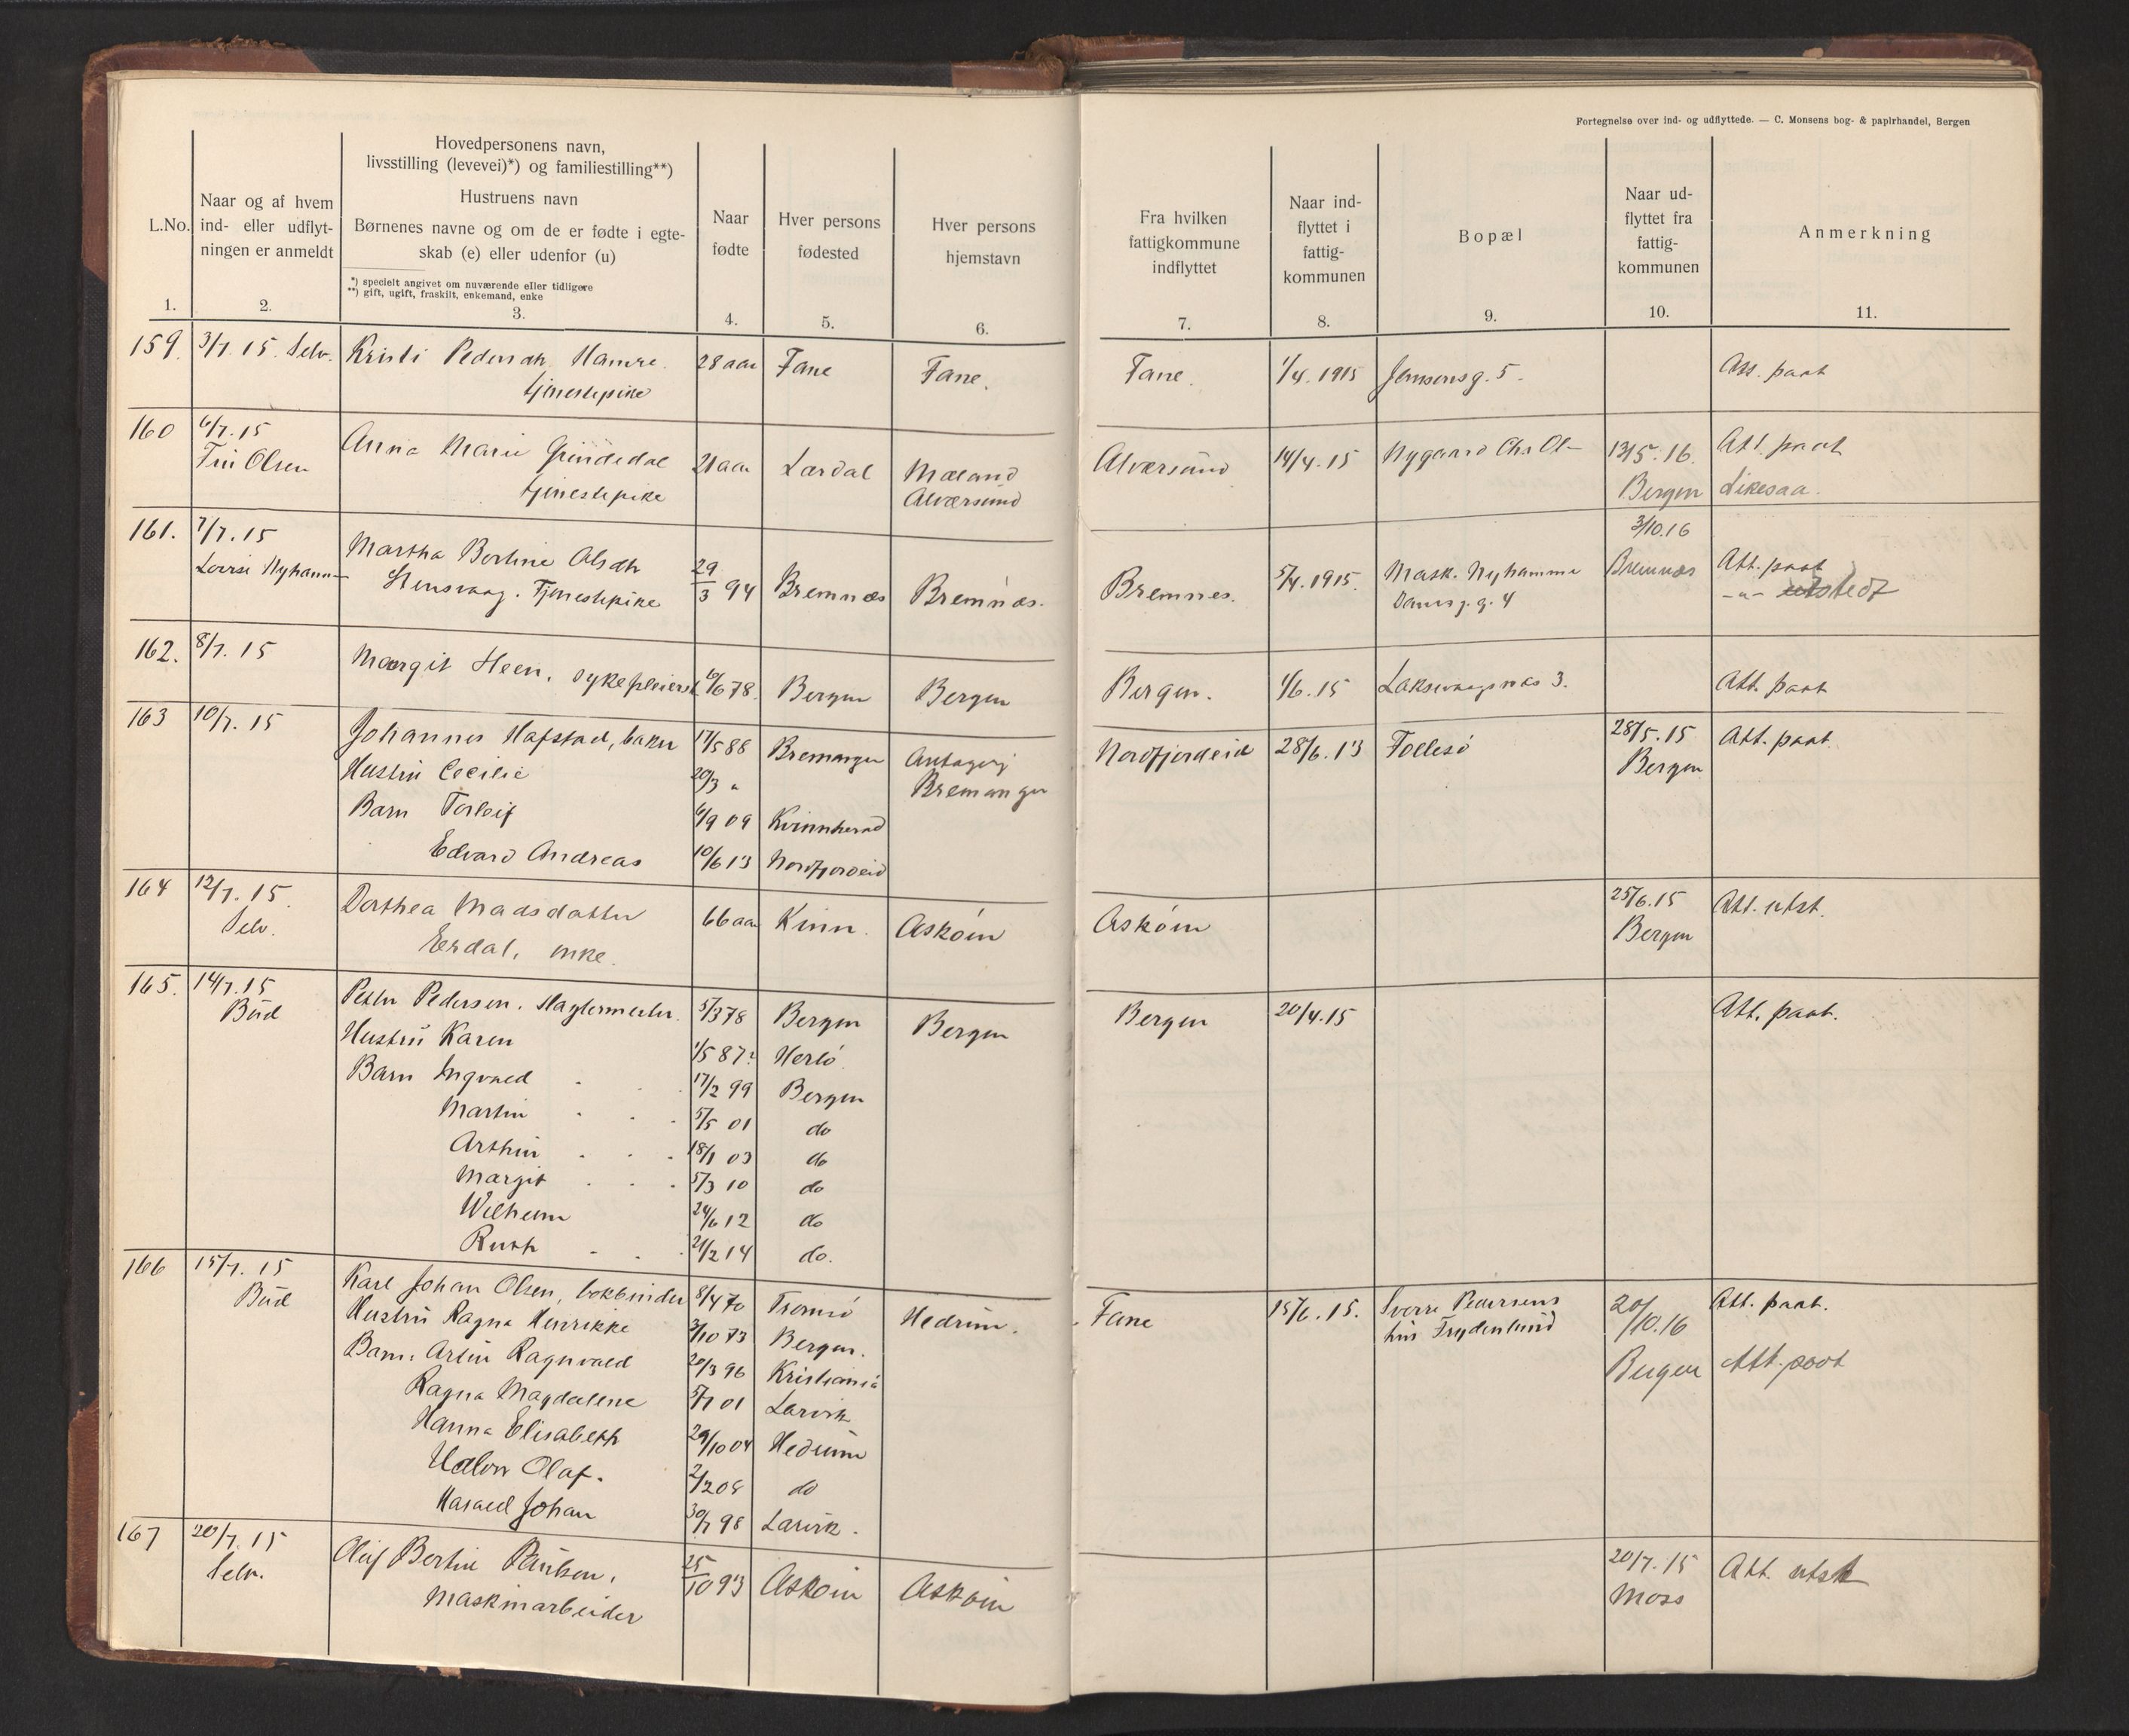 Fortegnelse over ind- og udflyttede. — C. Monsens bog- & papirhandel, Bergen
L.No.
Naar og af hvem
ind- eller udflyt-
ningen er anmeldt
Hovedpersonens navn,
livsstilling (levevei)*) og familiestilling**)
Hustruens navn
Børnenes navne og om de er fødte i egte-
skab (e) eller udenfor (u)
*) specielt angivet om nuværende eller tidligere
**) gift, ugift, fraskilt, enkemand, enke
Naar
fødte
Hver persons
fødested
Hver persons
hjemstavn
Fra hvilken
fattigkommune
indflyttet
Naar ind-
flyttet i
fattig-
kommunen
Bopæl
Naar ud-
flyttet fra
fattig-
kommunen
Anmerkning
1. 2. 3. 4. 5. 6. 7. 8. 9. 10. 11.
159. 3/7. 15. Selv. Kristi Pedersdtr. Hamre. 28 aar Fane Fane. Fane. 1/4. 1915 Jensensg. 5. Att. paat
tjenestepike
160 6/7. 15 Anna Marie 21 aar Lærdal Mæland Alversund 14/4. 15 Nygaard Chr. Ol- 13/5. 16. Att. paat
Fru Olsen tjenestepike Alværsund Bergen Likesaa.
161. 7/7. 15 Martha Bertine Olsdtr 29/3 94 Bremnæs Bremnæs. Bremnes. 5/4. 1915. Mask. Nyhamme 3/10.16 Att. paat
Lovise Nyhamm- Stensvaag. Tjenestepike Danm.g. 4 Bremnæs -"- utstedt
162. 8/7. 15 Margit Steen, sykepleiersk 78. Bergen Bergen Bergen. 1/6. 15 Laksevaagsnæs 3. Att. paat
163 10/7. 15 Johannes Hafstad, baker 17/5 88 Bremanger Bremanger Nordfjordeid 28/6. 13 Follesö 28/5. 15 Att. paat.
Hustru Cecilie 20/3 " Bergen
Barn Torleif 6/9 09 Kvinnherad
Edvard Andreas 10/6 13 Nordfjordeid
164 12/7. 15. Dorthea Madsdatter 66 aar Kinn. Asköin Asköin 25/6.15 Att. utst.
Selv. Erdal, enke. Bergen
165. 14/7. 15 Petter Pedersen. Slagtermester. 5/3 78 Bergen Bergen Bergen 20/4.15 Att. paat.
Bud Hustru Karen 1/5 87? Herlö.
Barn Ingvald 17/2 99 Bergen
Martin 5/5 01 do
Arthur 18/1 03 do
Margit 5/3 10 do
Wilhelm 24/6 12 do
Ruth 21/2 14 do.
166 15/7. 15 Karl Johan Olsen, bokbinder 8/4 70 Tromsö Hedrum. Fane 15/6. 15. Sverre Pedersens 20/10.16 Att. paat.
Bud Hustru Ragna Henrikke 3/10 73 Bergen. hus Frydenlund Bergen Att. paat
Barn. Artur Ragnvald 20/3 96 Kristiania
Ragna Magdalene 5/7 01 Larvik
Hanna Elisabeth 29/10 04 Hedrum
Olaf. 2/2 08 do
Harald Johan 30/7 98 Larvik.
167 20/7. 15 Olaf Bertin Paulsen, 25/10 93 Asköin Asköin 20/7. 15 Att. utst
Selv. Maskinarbeider Moss